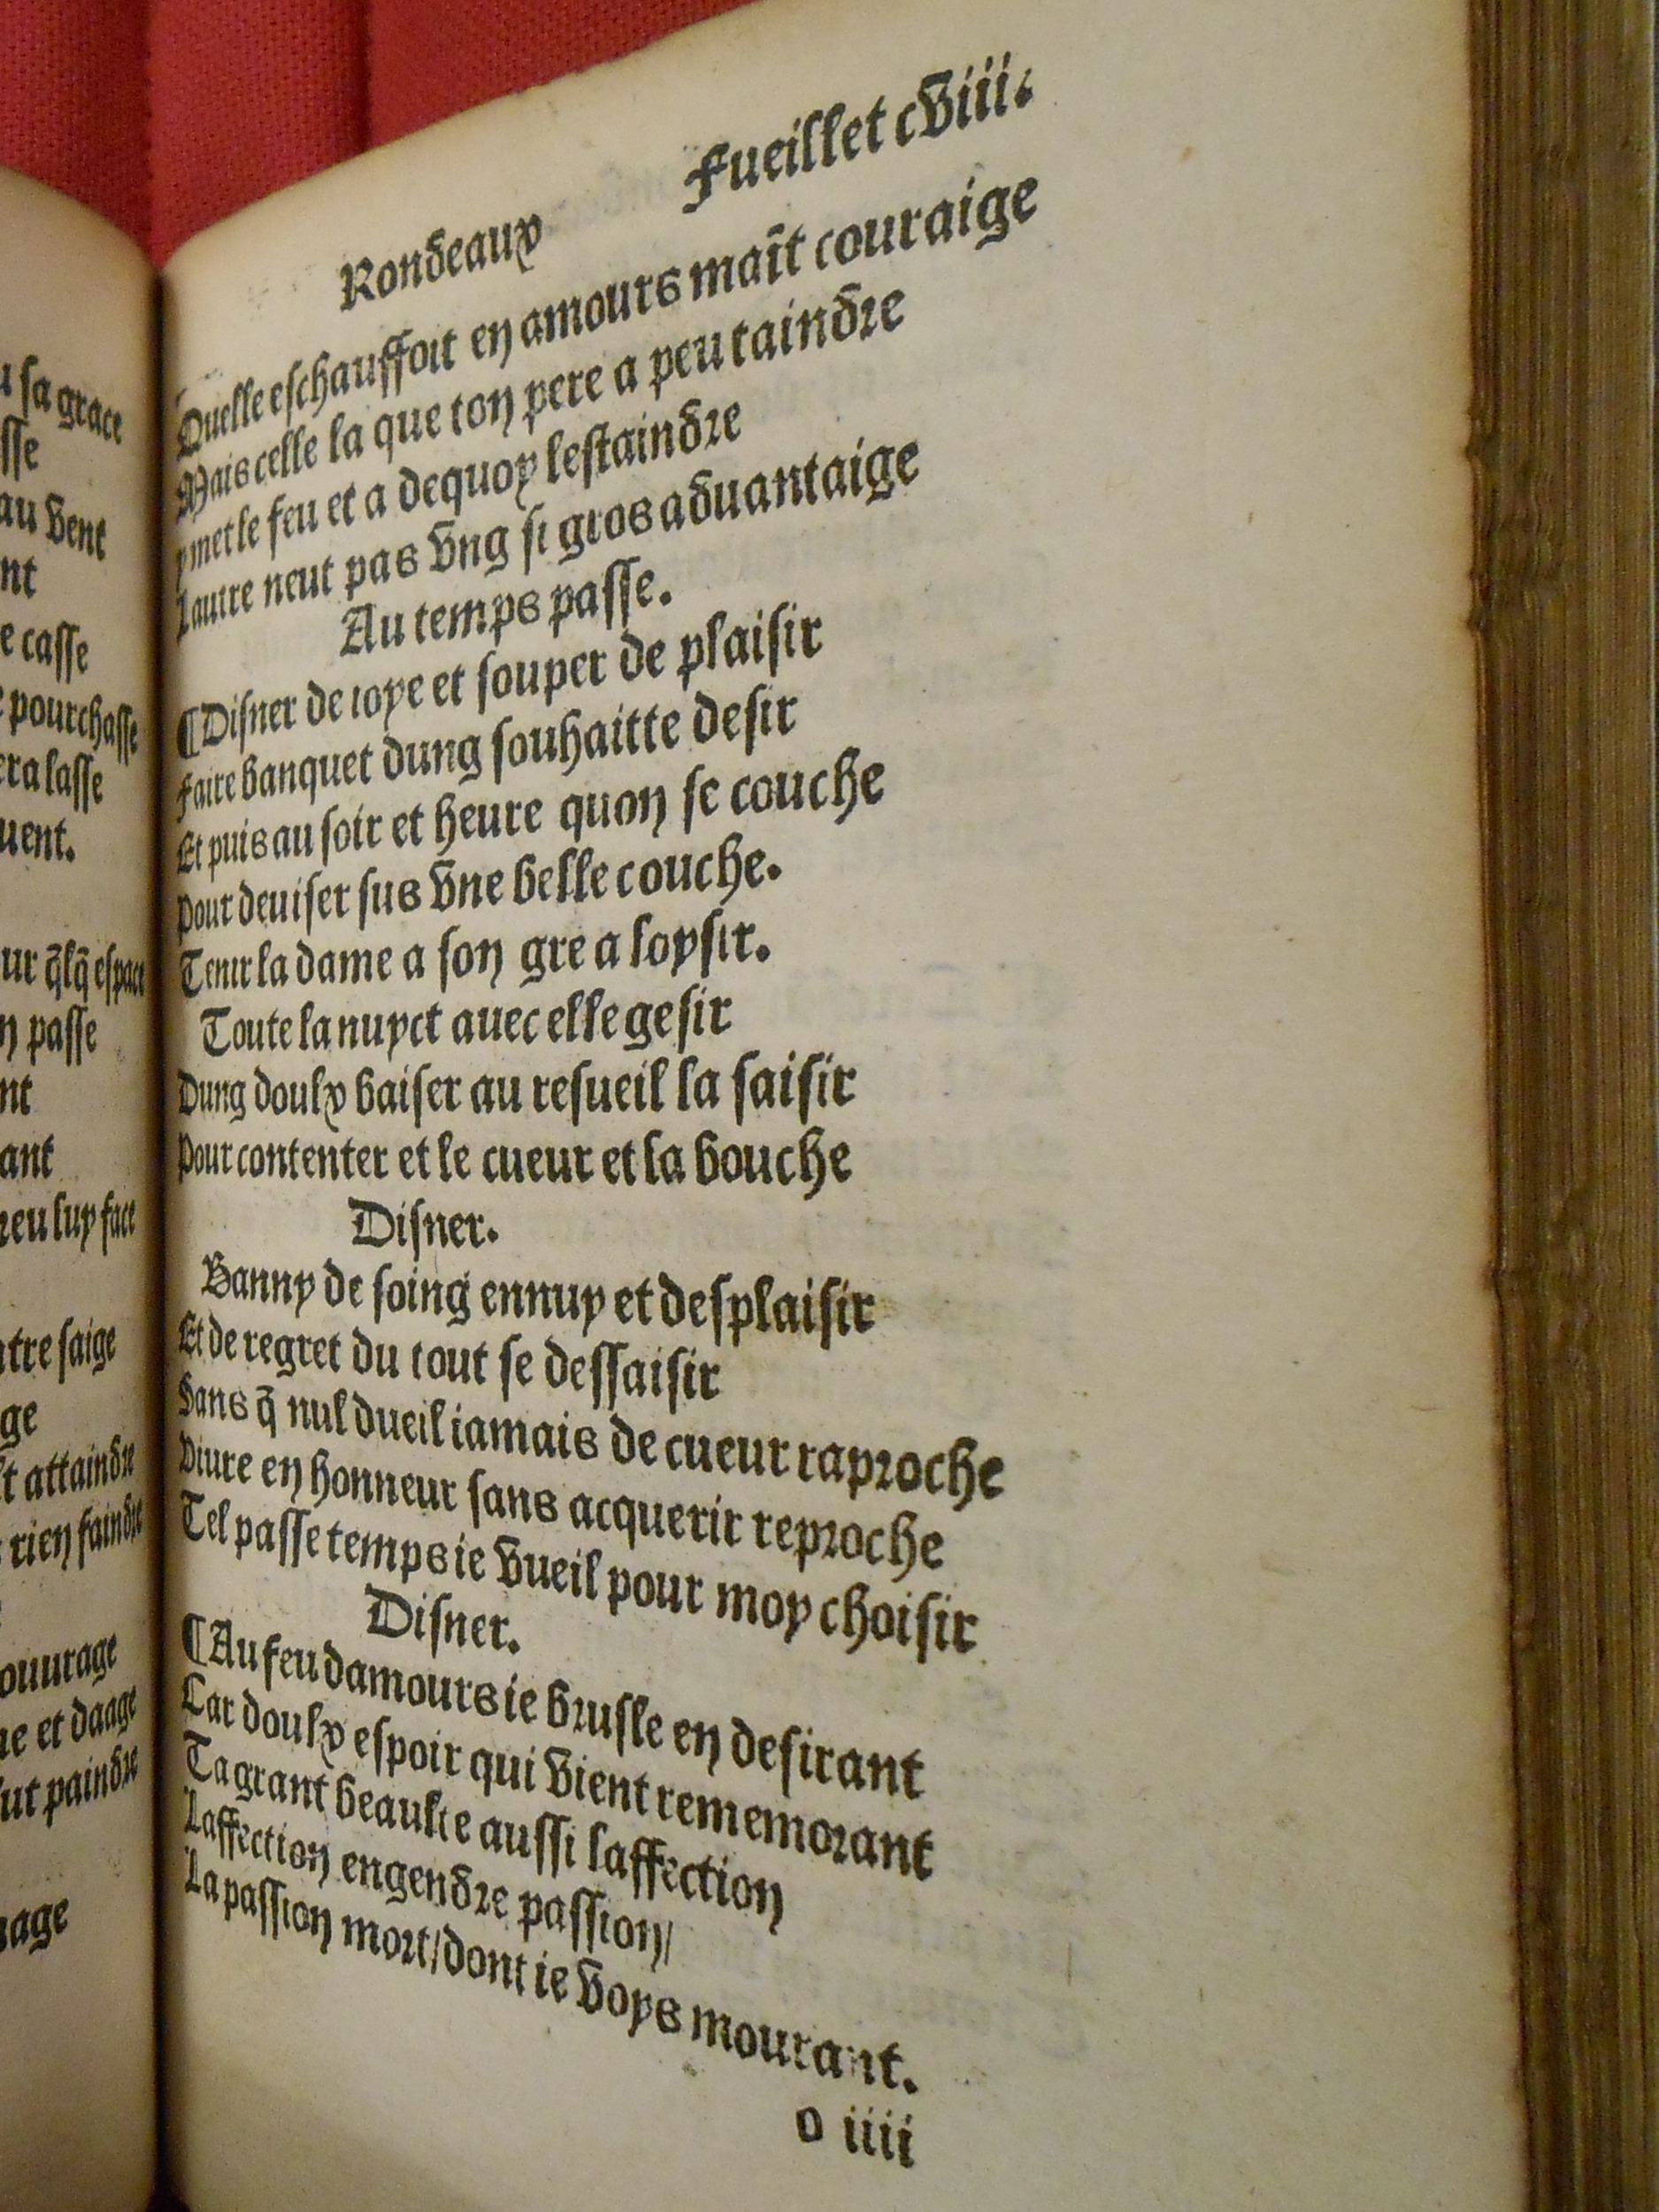 u sa grace
sse
au vent
nt
e casse
e pourchasse
era lasse
uent.
ur q̃lq̃ espace
n passe
nt
ant
reu luy face
ntre saige
ge
t attaindre
rien faindre
ouurage
ue et daage
ut paindre
age
Rondeaux
Fueillet cviii.
Quelle eschauffoit en amours maĩt couraige
Mais celle la que ton pere a peu taindre
y met le feu et a dequoy lestaindre
Lautre neut pas vng si gros aduantaige
Au temps passe.
¶Disner de ioye et souper de plaisir
Faire banquet dung souhaitte desir
Et puis au soir et heure quon se couche
Pour deuiser sus vne belle couche.
Tenir la dame a son gre a loysir.
Toute la nuyct auec elle gesir
Dung doulx baiser au resueil la saisir
Pour contenter et le cueur et la bouche
Disner.
Banny de soing ennuy et desplaisir
Et de regret du tout se dessaisir
Sans q̃ nul dueil iamais de cueur raproche
Viure en honneur sans acquerir reproche
Tel passe temps ie vueil pour moy choisir
Disner.
¶Au feu damours ie brusle en desirant
Car doulx espoir qui vient rememorant
Ta grant beaulte aussi laffection
Laffection engendre passion/
La passion mort/dont ie voys mourant.
o iiii